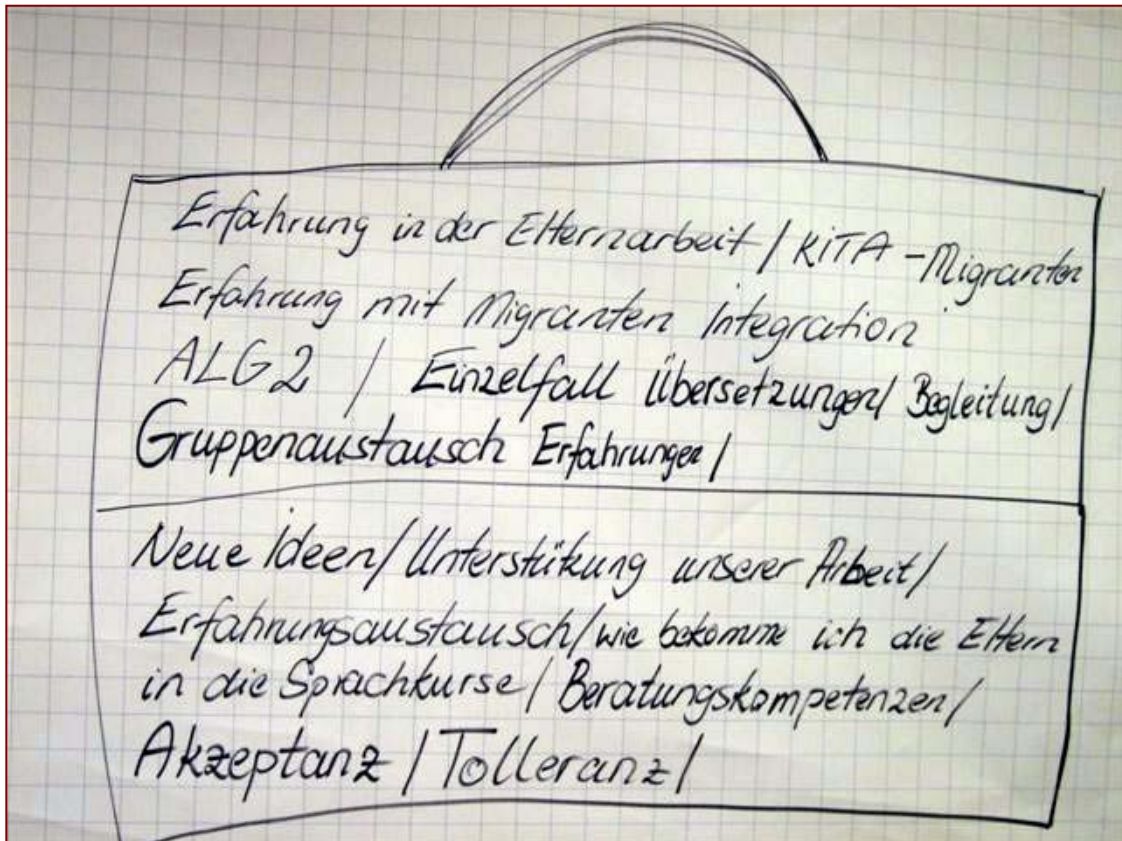 Erfahrung in der Elternarbeit / KiTA - Migranten
Erfahrung mit Migranten Integration
ALG2 / Einzelfall Übersetzungen / Begleitung /
Gruppenaustausch Erfahrungen /
Neue Ideen / Unterstützung unserer Arbeit /
Erfahrungsaustausch / wie bekomme ich die Eltern
in die Sprachkurse / Beratungskompetenzen /
Akzeptanz / Tolleranz /